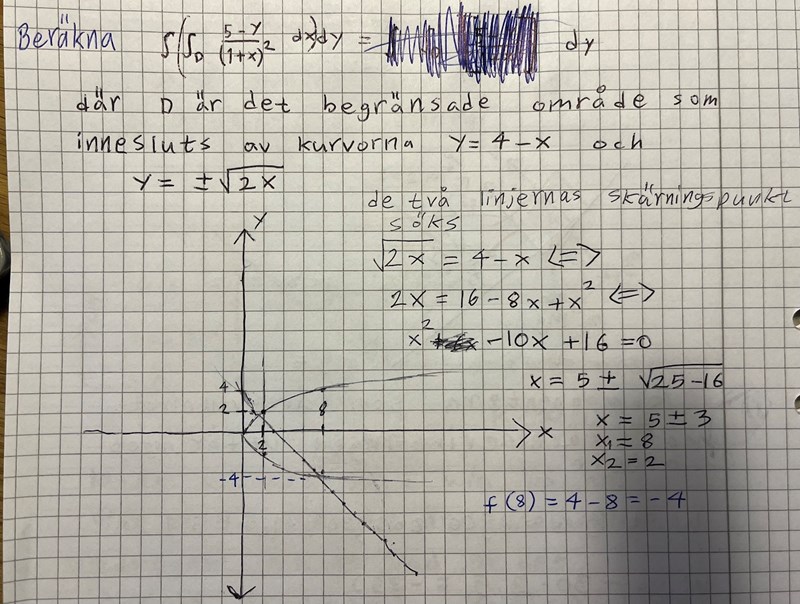 Beräkna ∫(∫_D (5-y)/(1+x)² dx)dy = dy
där D är det begränsade område som
innesluts av kurvorna y = 4 - x och
y = ±√(2x)
de två linjernas skärningspunkt
söks
√(2x) = 4 - x <=>
2x = 16 - 8x + x² <=>
x² - 10x + 16 = 0
x = 5 ± √(25-16)
x = 5 ± 3
x₁ = 8
x₂ = 2
f(8) = 4 - 8 = -4
y
4
2
8
x
2
-4